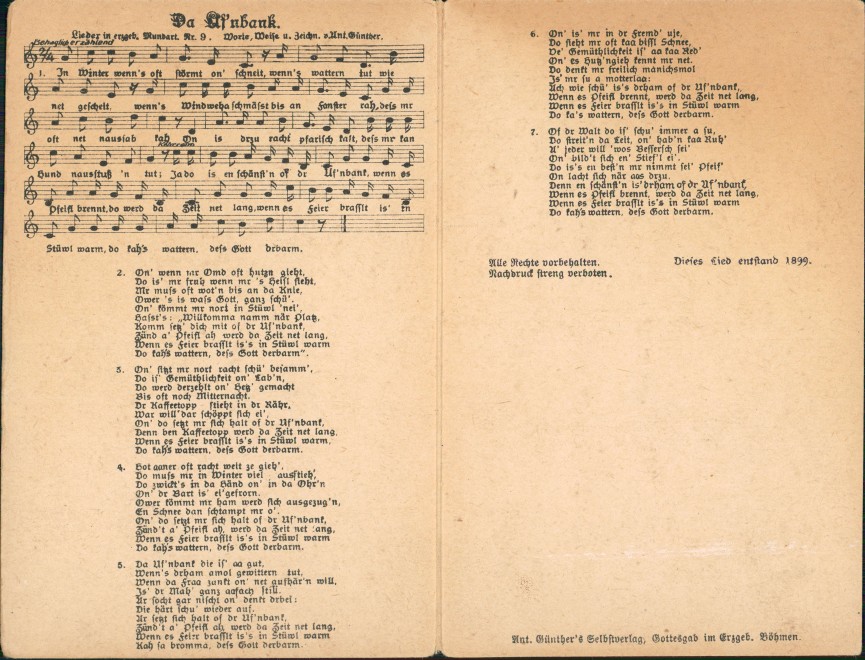 Da Uf'nbank.
Lieder in erzgeb. Mundart. Nr. 9. Worte, Weise u. Zeichn. v. Ant. Günther.
Behaglich erzählend
1. In Winter wenn's oft störmt on' schneit, wenn's wattern tut wie
net gescheit, wenn's Windweha schmässt bis an Fanster rah, dess mr
oft net nausiah kah. On is drzu racht pfarisch kalt, dess mr kan
Hund nausstuß 'n tut; Ja do is en schänst'n of dr Uf'nbank, wenn es
Pfeifl brennt, do werd da Zeit net lang, wenn es Feier brasslt is' in
Stüwl warm, do kah's wattern, dess Gott drbarm.
2. On' wenn mr Omd oft hutzn gieht,
Do is' mr fruh wenn mr 's Heisl sieht,
Mr muss oft wot'n bis an da Knie,
Ower 's is wass Gott, ganz schü'.
On' kömmt mr nort in Stüwl 'nei',
Hasst's: „Willkomma namm när Platz,
Komm setz' dich mit of dr Uf'nbank,
Zünd a' Pfeifl ah werd da Zeit net lang,
Wenn es Feier brasslt is's in Stüwl warm
Do kah's wattern, dess Gott derbarm".
3. On' sitzt mr nort racht schü' besamm',
Do is' Gemüthlichkeit on' Lab'n,
Do werd derzehlt on' Hetz' gemacht
Bis oft noch Mitternacht.
Dr Kaffeetopp stieht in dr Rähr,
War will' dar schöppt sich ei',
On' do setzt mr sich halt of dr Uf'nbank,
Denn ben Kaffeetopp werd da Zeit net lang,
Wenn es Feier brasslt is's in Stüwl warm,
Do kah's wattern, dess Gott derbarm.
4. Hot aaner oft racht weit ze gieh',
Do muss mr in Winter viel ausstieh',
Do zwickt's in da Händ on' in da Ohr'n
On' dr Bart is' ei'gefrorn.
Ower kömmt mr ham werd sich ausgezug'n,
En Schnee dan schtampt mr o'.
On' do setzt mr sich halt of dr Uf'nbank,
Zünd't a' Pfeifl ah, werd da Zeit net lang,
Wenn es Feier brasslt is's in Stüwl warm
Do kah's wattern, dess Gott derbarm.
5. Da Uf'nbank die is' aa gut,
Wenn's drham amol gewittern tut,
Wenn da Fraa zankt on' net aufhär'n will,
Is' dr Mah' ganz aafach still.
Ar socht gar nischt on' denkt drbei:
Die härt schu' wieder auf.
Ar setzt sich halt of dr Uf'nbank,
Zünd't a' Pfeifl ah werd da Zeit net lang,
Wenn es Feier brasslt is's in Stüwl warm
Kah sa bromma, dess Gott derbarm.
6. On' is' mr in dr Fremd' uje,
Do sieht mr oft kaa bissl Schnee,
De' Gemüthlichkeit is' aa kaa Red'
On' es Hutz'ngieh kennt mr net.
Do denkt mr freilich manichsmol
Is' mr su a motterlag:
Ach wie schü' is's drham of dr Uf'nbank,
Wenn es Pfeifl brennt, werd da Zeit net lang,
Wenn es Feier brasslt is's in Stüwl warm
Do ka's wattern, dess Gott derbarm.
7. Of dr Walt do is' schu' immer a su,
Do streit'n da Leit, on' hab'n kaa Ruh'
A' jeder will 'wos Besserſch sei'
On' bild't sich en' Stief'l ei'.
Do is's en best'n mr nimmt sei' Pfeif'
On lacht sich när aas drzu.
Denn en schänst'n is' drham of dr Uf'nbank,
Wenn es Pfeifl brennt, werd da Zeit net lang,
Wenn es Feier brasslt is's in Stüwl warm
Do kah's wattern, dess Gott derbarm.
Alle Rechte vorbehalten.
Nachdruck streng verboten.
Dieses Lied entstand 1899.
Ant. Günther's Selbstverlag, Gottesgab im Erzgeb. Böhmen.